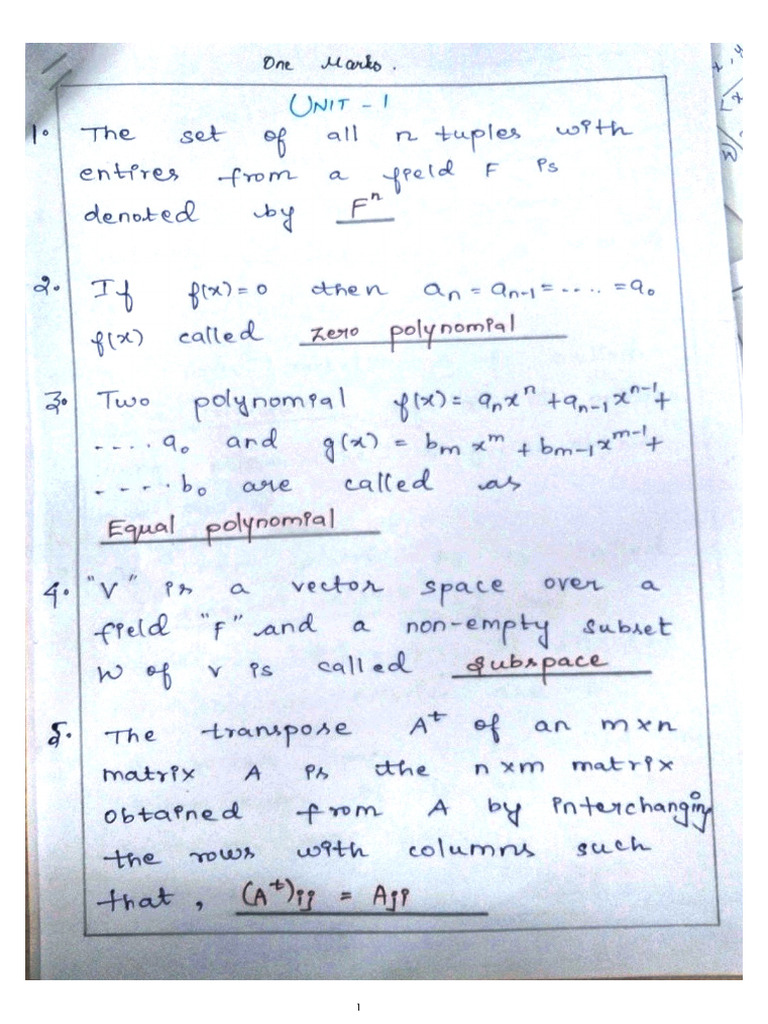 One Marks.
UNIT - 1
1. The set of all n tuples with
entires from a field F is
denoted by Fⁿ
2. If f(x) = 0 then aₙ = aₙ₋₁ = ..... = a₀
f(x) called zero polynomial
3. Two polynomial f(x) = aₙxⁿ + aₙ₋₁xⁿ⁻¹ +
..... a₀ and g(x) = bₘ xᵐ + bₘ₋₁xᵐ⁻¹ +
..... b₀ are called as
Equal polynomial
4. "V" is a vector space over a
field "F" and a non-empty subset
W of V is called subspace
5. The transpose Aᵗ of an m×n
matrix A is the n×m matrix
obtained from A by interchanging
the rows with columns such
that, (Aᵗ)ij = Aji
1